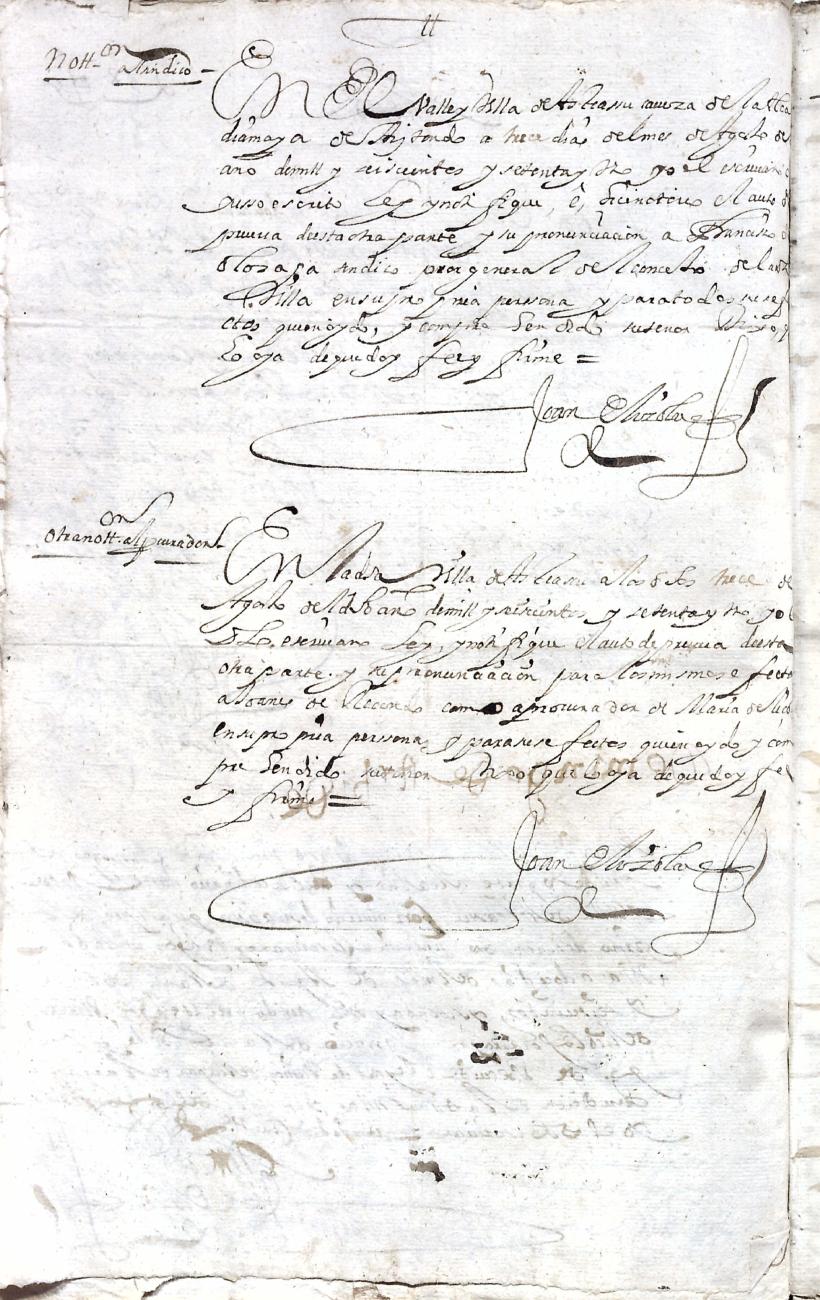 tt
Nott.on
a sindico
En El Valle y Villa de Atheassu caveza de la Alca
diamaya de Aiztondo a trece dias del mes de Agosto de
ano de mill y seiscientos y setenta y yo el escrivano
ynsso escrito Ley y notifique, e, hice notorio el auto de
prueva de esta otra parte y su pronunciacion a Francisco de
Olozaga sindico pror general del concejo de la dha
Villa en su propria persona y para todos sus efe
ctos quien oydo, y compre hendido su tenor Dixo q
lo oya de que doy fee y firme =
Joan de Alzola
otra nott.on al procurador
En la dha Villa de Atheassu a los dhos trece de
Agosto del dho ano de mill y seiscientos y setenta y yo el
dho escrivano Ley, y notifique el auto de prueva de esta
otra parte y su pronunciacion para los mismos efectos
a Joanes de Recondo como a procurador de Maria de
en su propria persona, y para sus efectos quien oydo y com
pre hendido su tenor Dixo que lo oya de que doy fee
y firme =
Joan de Alzola